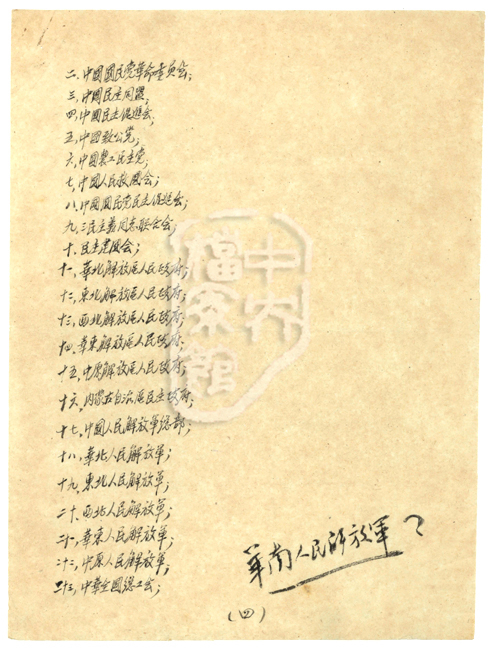 二、中國國民党革命委員会；
三、中國民主同盟；
四、中國民主促進会；
五、中國致公党；
六、中國農工民主党；
七、中國人民救國会；
八、中國國民党民主促進会；
九、三民主義同志联合会；
十、民主建國会；
十一、華北解放區人民政府；
十二、東北解放區人民政府；
十三、西北解放區人民政府；
十四、華東解放區人民政府；
十五、中原解放區人民政府；
十六、內蒙古自治區民主政府；
十七、中國人民解放軍總部；
十八、華北人民解放軍；
十九、東北人民解放軍；
二十、西北人民解放軍；
二十一、華東人民解放軍；
二十二、中原人民解放軍；
二十三、中華全國總工会；
華南人民解放軍？
（四）
中央
檔案館